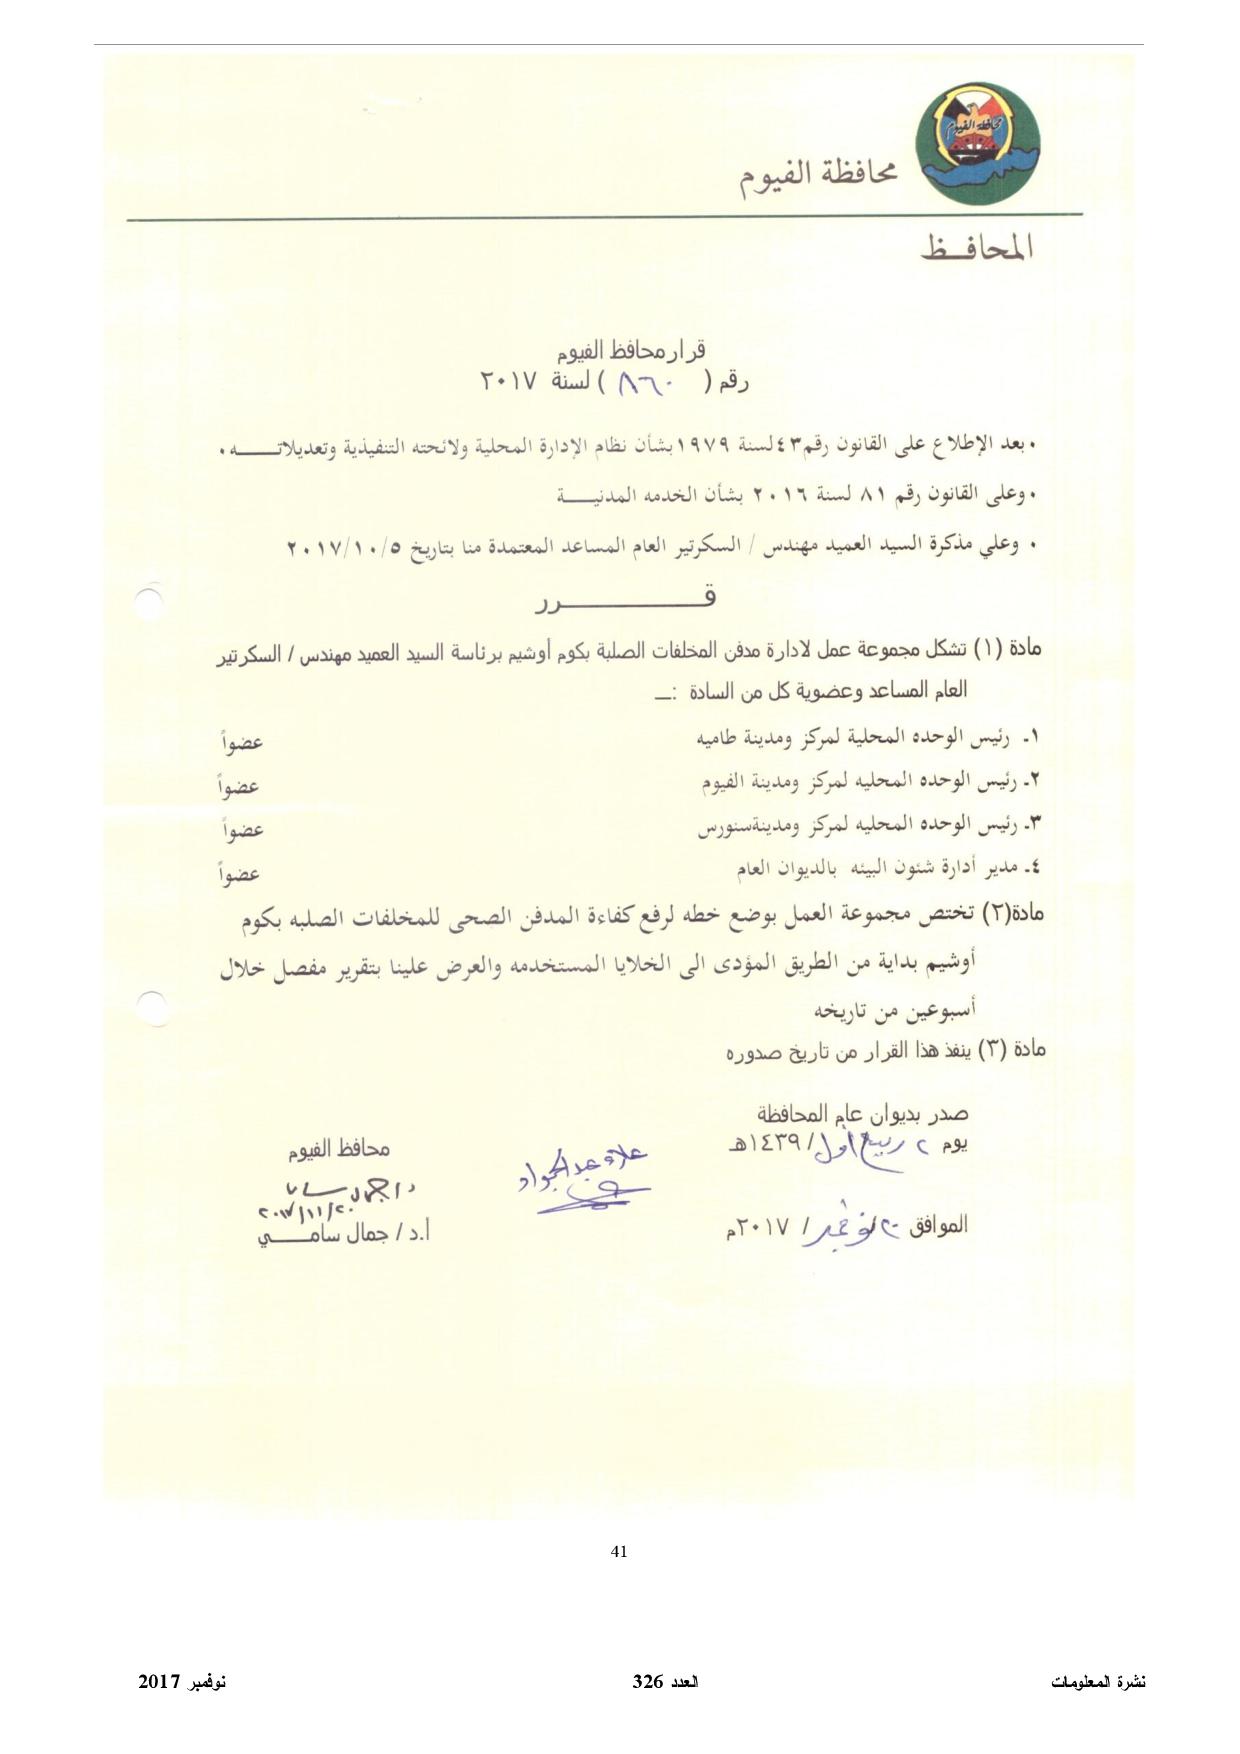 محافظة الفيوم
محافظة الفيوم
المحافـــظ
قرار محافظ الفيوم
رقم ( ٨٦٠ ) لسنة ٢٠١٧
٠ بعد الإطلاع على القانون رقم ٤٣ لسنة ١٩٧٩ بشأن نظام الإدارة المحلية ولائحته التنفيذية وتعديلاتـــــه ٠
٠ وعلى القانون رقم ٨١ لسنة ٢٠١٦ بشأن الخدمه المدنيـــة
٠ وعلي مذكرة السيد العميد مهندس / السكرتير العام المساعد المعتمدة منا بتاريخ ٢٠١٧/١٠/٥
قــــــــــرر
مادة (١) تشكل مجموعة عمل لادارة مدفن المخلفات الصلبة بكوم أوشيم برئاسة السيد العميد مهندس / السكرتير
العام المساعد وعضوية كل من السادة :ــ
١ـ رئيس الوحده المحلية لمركز ومدينة طاميه عضواً
٢ـ رئيس الوحده المحليه لمركز ومدينة الفيوم عضواً
٣ـ رئيس الوحده المحليه لمركز ومدينةسنورس عضواً
٤ـ مدير أدارة شئون البيئه بالديوان العام عضواً
مادة(٢) تختص مجموعة العمل بوضع خطه لرفع كفاءة المدفن الصحى للمخلفات الصلبه بكوم
أوشيم بداية من الطريق المؤدى الى الخلايا المستخدمه والعرض علينا بتقرير مفصل خلال
أسبوعين من تاريخه
مادة (٣) ينفذ هذا القرار من تاريخ صدوره
صدر بديوان عام المحافظة
يوم ٢ ربيع أول/ ١٤٣٩هـ
الموافق ٢٠/ نوفمبر / ٢٠١٧م
علاء عبد الجواد
محافظ الفيوم
د/ جمال سامى
٢٠١٧/١١/٢٠
أ.د / جمال سامـــــي
41
نشرة المعلومات العدد 326 نوفمبر 2017